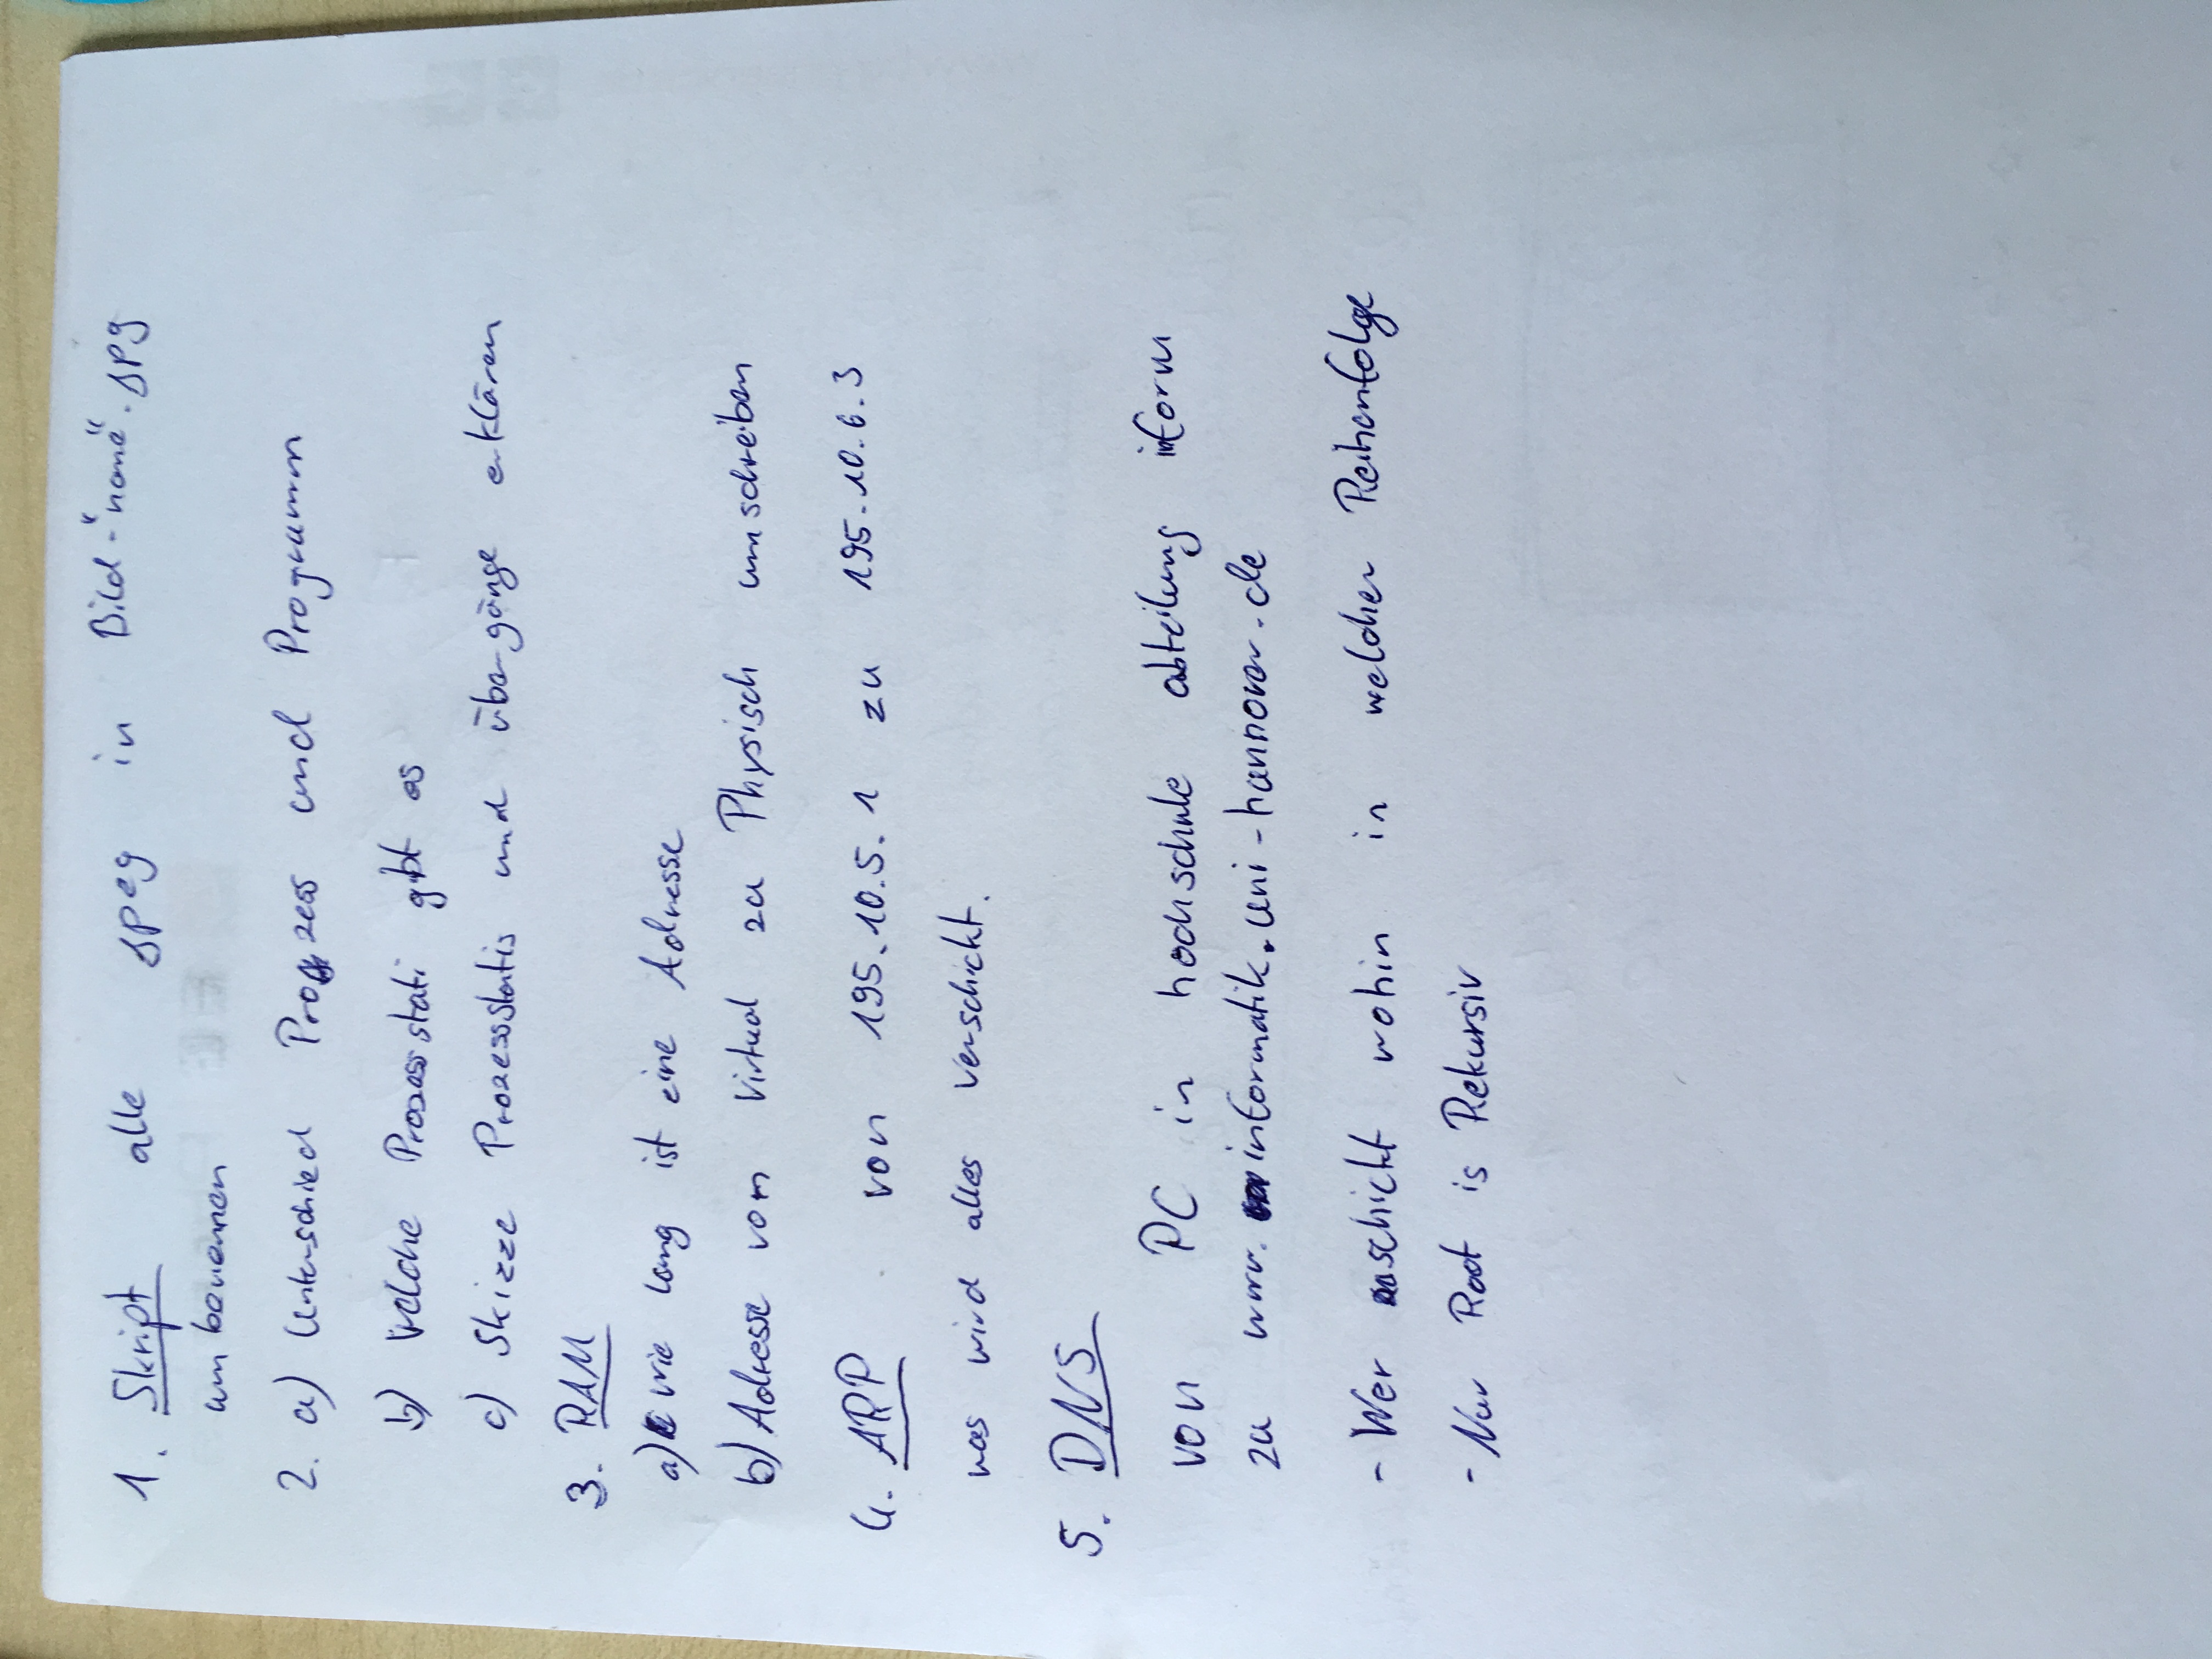 1. Skript alle jpeg in Bild-"name".jpg
umbenennen
2. a) Unterschied Prozess und Programm
b) Welche Prozessstati gibt es
c) Skizze Prozessstatis und übergänge erklären
3. RAM
a) wie lang ist eine Adresse
b) Adresse vom Virtual zu Physisch umschreiben
4. ARP von 195.10.5.1 zu 195.10.6.3
was wird alles verschickt.
5. DNS
von PC in hochschule abteilung inform
zu www.informatik.uni-hannover.de
- Wer schickt wohin in welcher Reihenfolge
- Nur Root is Rekursiv